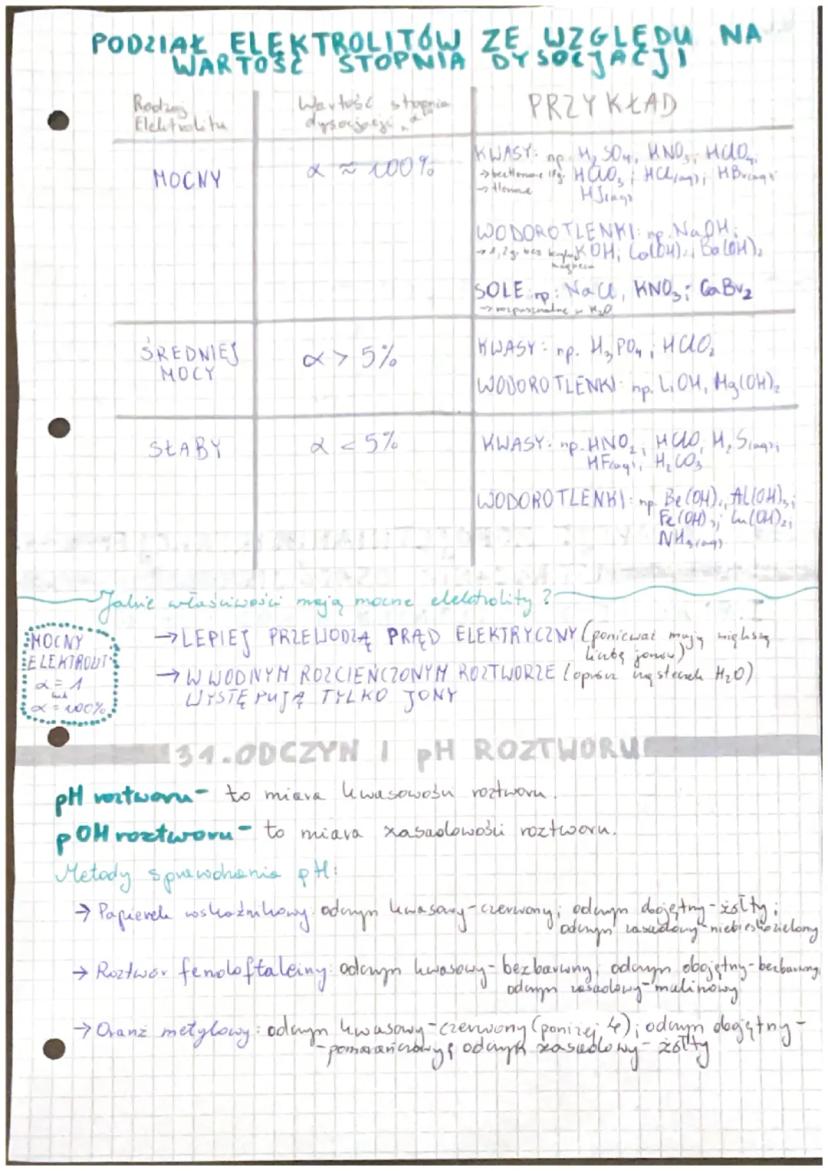 PODZIAŁ ELEKTROLITÓW ZE WZGLĘDU NA
WARTOŚĆ STOPNIA DYSOCJACJI
Rodzaj Elektrolitu
Wartość stopnia dysocjacji "α"
PRZYKŁAD
MOCNY
α ≈ 100%
KWASY: np. H₂SO₄, HNO₃; HClO₄;
→ beztlenowe 17g. HClO₃; HCl(aq); HBr(aq);
→ tlenowe HJ(aq)
WODOROTLENKI: np. NaOH;
→ 1, 2g. bez KOH; Ca(OH)₂; Ba(OH)₂
magnezu
SOLE np: NaCl, KNO₃; CaBr₂
→ rozpuszczalne w H₂O
ŚREDNIEJ
MOCY
α > 5%
KWASY: np. H₃PO₄; HClO₂
WODOROTLENKI: np. LiOH, Mg(OH)₂
SŁABY
α < 5%
KWASY: np. HNO₂, HClO, H₂S(aq);
HF(aq), H₂CO₃
WODOROTLENKI: np. Be(OH)₂, Al(OH)₃;
Fe(OH)₃; Cu(OH)₂;
NH₃(aq)
Jakie właściwości mają mocne elektrolity?
MOCNY
ELEKTROLIT
α = 1
lub
α = 100%
→ LEPIEJ PRZEWODZĄ PRĄD ELEKTRYCZNY (ponieważ mają większą
liczbę jonów)
→ W WODNYM ROZCIEŃCZONYM ROZTWORZE (oprócz cząsteczek H₂O)
WYSTĘPUJĄ TYLKO JONY
34. ODCZYN I pH ROZTWORU
pH roztworu - to miara kwasowości roztworu.
pOH roztworu - to miara zasadowości roztworu.
Metody sprawdzania pH:
→ Papierek wskaźnikowy: odczyn kwasowy - czerwony; odczyn obojętny - żółty;
odczyn zasadowy - niebieskozielony
→ Roztwór fenoloftaleiny: odczyn kwasowy - bezbarwny, odczyn obojętny - bezbarwny,
odczyn zasadowy - malinowy
→ Oranż metylowy: odczyn kwasowy - czerwony (poniżej 4); odczyn obojętny -
- pomarańczowy; odczyn zasadowy - żółty